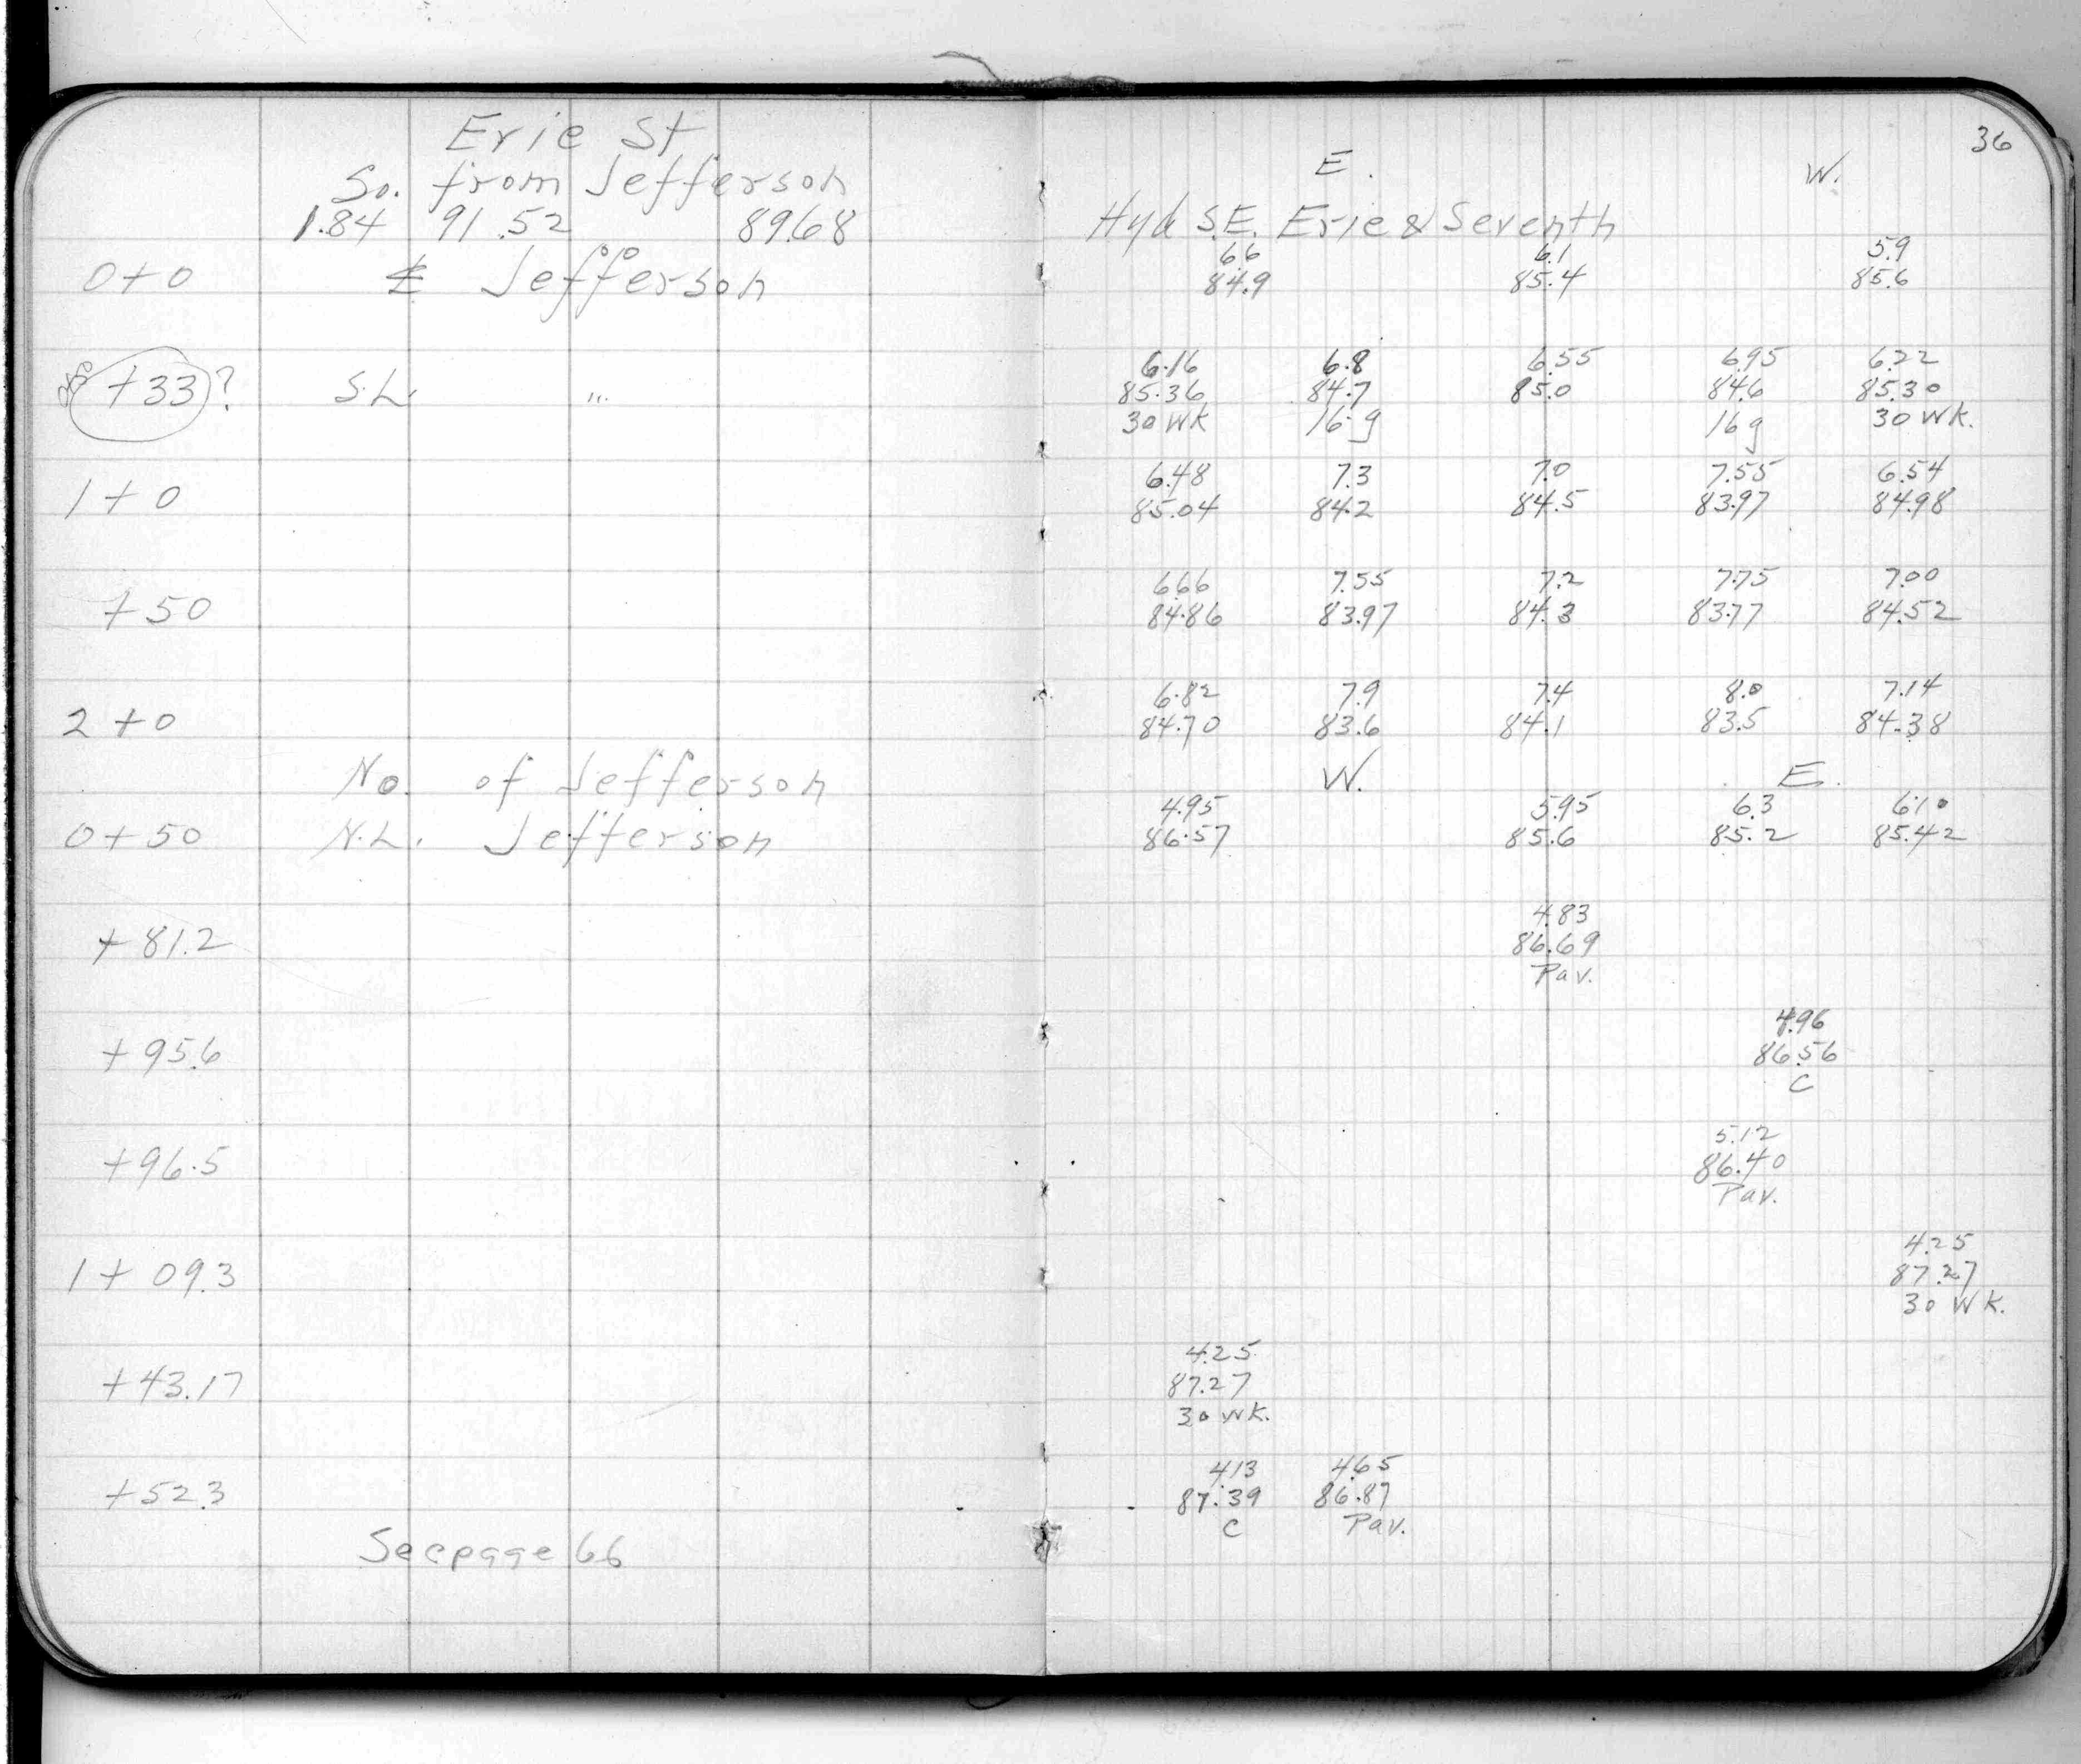 Erie St
So. from Jefferson
1.84 91.52 89.68
0+0 ℄ Jefferson
+33 ? S.L. "
1+0
+50
2+0
No. of Jefferson
0+50 N.L. Jefferson
+81.2
+95.6
+96.5
1+09.3
+43.17
+52.3
See page 66
36
E. W.
Hyd S.E. Erie & Seventh
6.6 6.1 5.9
84.9 85.4 85.6
6.16 6.8 6.55 6.95 6.22
85.36 84.7 85.0 84.6 85.30
30 WK 16 g 16 g 30 WK.
6.48 7.3 7.0 7.55 6.54
85.04 84.2 84.5 83.97 84.98
6.66 7.55 7.2 7.75 7.00
84.86 83.97 84.3 83.77 84.52
6.82 7.9 7.4 8.0 7.14
84.70 83.6 84.1 83.5 84.38
W. E.
4.95 5.95 6.3 6.10
86.57 85.6 85.2 85.42
4.83
86.69
Pav.
4.96
86.56
C
5.12
86.40
Pav.
4.25
87.27
30 WK.
4.25
87.27
30 WK.
4.13 4.65
87.39 86.87
C Pav.